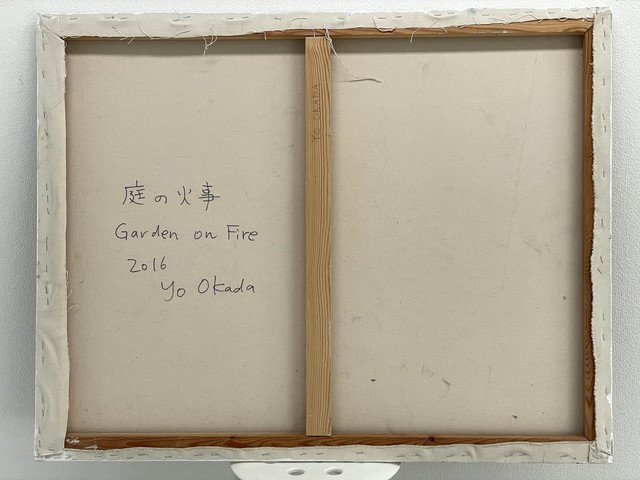 庭の火事
Garden on Fire
2016
Yo Okada
YO OKADA